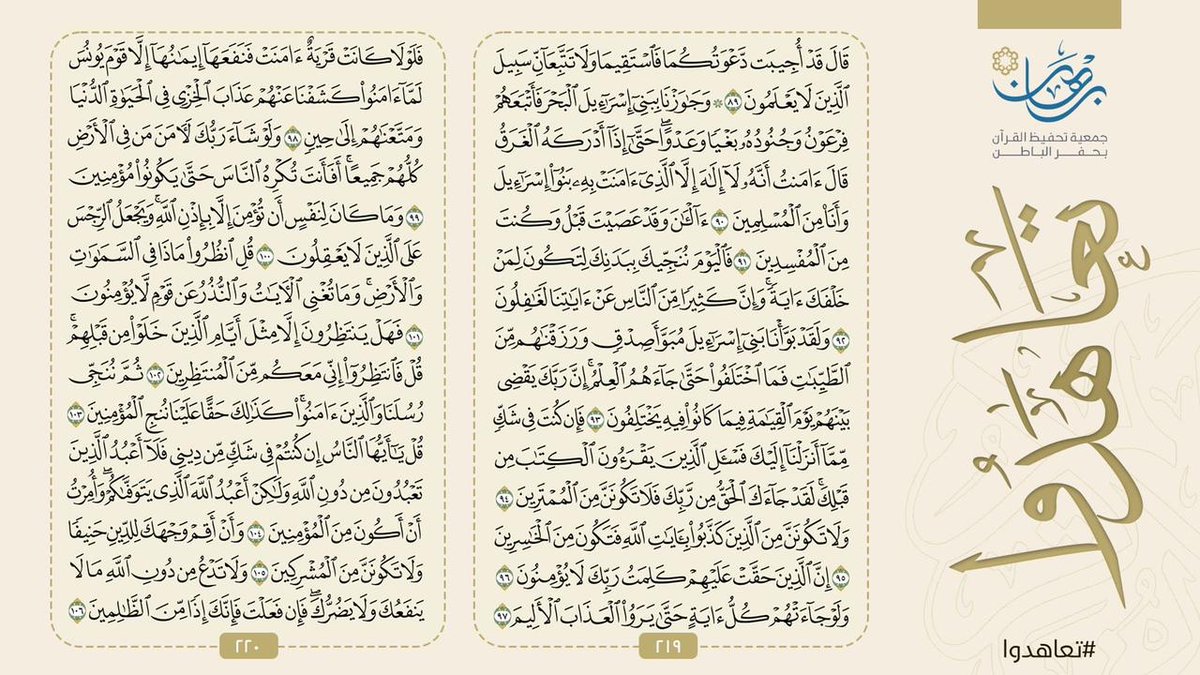 برهان
جمعية تحفيظ القرآن
بحفر الباطن
تعاهدوا
#تعاهدوا
قَالَ قَدْ أُجِيبَت دَّعْوَتُكُمَا فَٱسْتَقِيمَا وَلَا تَتَّبِعَآنِّ سَبِيلَ
ٱلَّذِينَ لَا يَعْلَمُونَ ٨٩ ۞ وَجَٰوَزْنَا بِبَنِىٓ إِسْرَٰٓءِيلَ ٱلْبَحْرَ فَأَتْبَعَهُمْ
فِرْعَوْنُ وَجُنُودُهُۥ بَغْيًا وَعَدْوًا ۖ حَتَّىٰٓ إِذَآ أَدْرَكَهُ ٱلْغَرَقُ
قَالَ ءَامَنتُ أَنَّهُۥ لَآ إِلَٰهَ إِلَّا ٱلَّذِىٓ ءَامَنَتْ بِهِۦ بَنُوٓا۟ إِسْرَٰٓءِيلَ
وَأَنَا۠ مِنَ ٱلْمُسْلِمِينَ ٩٠ ءَآلْـَٰٔنَ وَقَدْ عَصَيْتَ قَبْلُ وَكُنتَ
مِنَ ٱلْمُفْسِدِينَ ٩١ فَٱلْيَوْمَ نُنَجِّيكَ بِبَدَنِكَ لِتَكُونَ لِمَنْ
خَلْفَكَ ءَايَةً ۚ وَإِنَّ كَثِيرًا مِّنَ ٱلنَّاسِ عَنْ ءَايَٰتِنَا لَغَٰفِلُونَ
٩٢ وَلَقَدْ بَوَّأْنَا بَنِىٓ إِسْرَٰٓءِيلَ مُبَوَّأَ صِدْقٍ وَرَزَقْنَٰهُم مِّنَ
ٱلطَّيِّبَٰتِ فَمَا ٱخْتَلَفُوا۟ حَتَّىٰ جَآءَهُمُ ٱلْعِلْمُ ۚ إِنَّ رَبَّكَ يَقْضِى
بَيْنَهُمْ يَوْمَ ٱلْقِيَٰمَةِ فِيمَا كَانُوا۟ فِيهِ يَخْتَلِفُونَ ٩٣ فَإِن كُنتَ فِى شَكٍّ
مِّمَّآ أَنزَلْنَآ إِلَيْكَ فَسْـَٔلِ ٱلَّذِينَ يَقْرَءُونَ ٱلْكِتَٰبَ مِن
قَبْلِكَ ۚ لَقَدْ جَآءَكَ ٱلْحَقُّ مِن رَّبِّكَ فَلَا تَكُونَنَّ مِنَ ٱلْمُمْتَرِينَ ٩٤
وَلَا تَكُونَنَّ مِنَ ٱلَّذِينَ كَذَّبُوا۟ بِـَٔايَٰتِ ٱللَّهِ فَتَكُونَ مِنَ ٱلْخَٰسِرِينَ
٩٥ إِنَّ ٱلَّذِينَ حَقَّتْ عَلَيْهِمْ كَلِمَتُ رَبِّكَ لَا يُؤْمِنُونَ ٩٦
وَلَوْ جَآءَتْهُمْ كُلُّ ءَايَةٍ حَتَّىٰ يَرَوُا۟ ٱلْعَذَابَ ٱلْأَلِيمَ ٩٧
٢١٩
فَلَوْلَا كَانَتْ قَرْيَةٌ ءَامَنَتْ فَنَفَعَهَآ إِيمَٰنُهَآ إِلَّا قَوْمَ يُونُسَ
لَمَّآ ءَامَنُوا۟ كَشَفْنَا عَنْهُمْ عَذَابَ ٱلْخِزْىِ فِى ٱلْحَيَوٰةِ ٱلدُّنْيَا
وَمَتَّعْنَٰهُمْ إِلَىٰ حِينٍ ٩٨ وَلَوْ شَآءَ رَبُّكَ لَءَامَنَ مَن فِى ٱلْأَرْضِ
كُلُّهُمْ جَمِيعًا ۚ أَفَأَنتَ تُكْرِهُ ٱلنَّاسَ حَتَّىٰ يَكُونُوا۟ مُؤْمِنِينَ
٩٩ وَمَا كَانَ لِنَفْسٍ أَن تُؤْمِنَ إِلَّا بِإِذْنِ ٱللَّهِ ۚ وَيَجْعَلُ ٱلرِّجْسَ
عَلَى ٱلَّذِينَ لَا يَعْقِلُونَ ١٠٠ قُلِ ٱنظُرُوا۟ مَاذَا فِى ٱلسَّمَٰوَٰتِ
وَٱلْأَرْضِ ۚ وَمَا تُغْنِى ٱلْءَايَٰتُ وَٱلنُّذُرُ عَن قَوْمٍ لَّا يُؤْمِنُونَ
١٠١ فَهَلْ يَنتَظِرُونَ إِلَّا مِثْلَ أَيَّامِ ٱلَّذِينَ خَلَوْا۟ مِن قَبْلِهِمْ ۚ
قُلْ فَٱنتَظِرُوٓا۟ إِنِّى مَعَكُم مِّنَ ٱلْمُنتَظِرِينَ ١٠٢ ثُمَّ نُنَجِّى
رُسُلَنَا وَٱلَّذِينَ ءَامَنُوا۟ ۚ كَذَٰلِكَ حَقًّا عَلَيْنَا نُنجِ ٱلْمُؤْمِنِينَ ١٠٣
قُلْ يَٰٓأَيُّهَا ٱلنَّاسُ إِن كُنتُمْ فِى شَكٍّ مِّن دِينِى فَلَآ أَعْبُدُ ٱلَّذِينَ
تَعْبُدُونَ مِن دُونِ ٱللَّهِ وَلَٰكِنْ أَعْبُدُ ٱللَّهَ ٱلَّذِى يَتَوَفَّىٰكُمْ ۖ وَأُمِرْتُ
أَنْ أَكُونَ مِنَ ٱلْمُؤْمِنِينَ ١٠٤ وَأَنْ أَقِمْ وَجْهَكَ لِلدِّينِ حَنِيفًا
وَلَا تَكُونَنَّ مِنَ ٱلْمُشْرِكِينَ ١٠٥ وَلَا تَدْعُ مِن دُونِ ٱللَّهِ مَا لَا
يَنفَعُكَ وَلَا يَضُرُّكَ ۖ فَإِن فَعَلْتَ فَإِنَّكَ إِذًا مِّنَ ٱلظَّٰلِمِينَ ١٠٦
٢٢٠